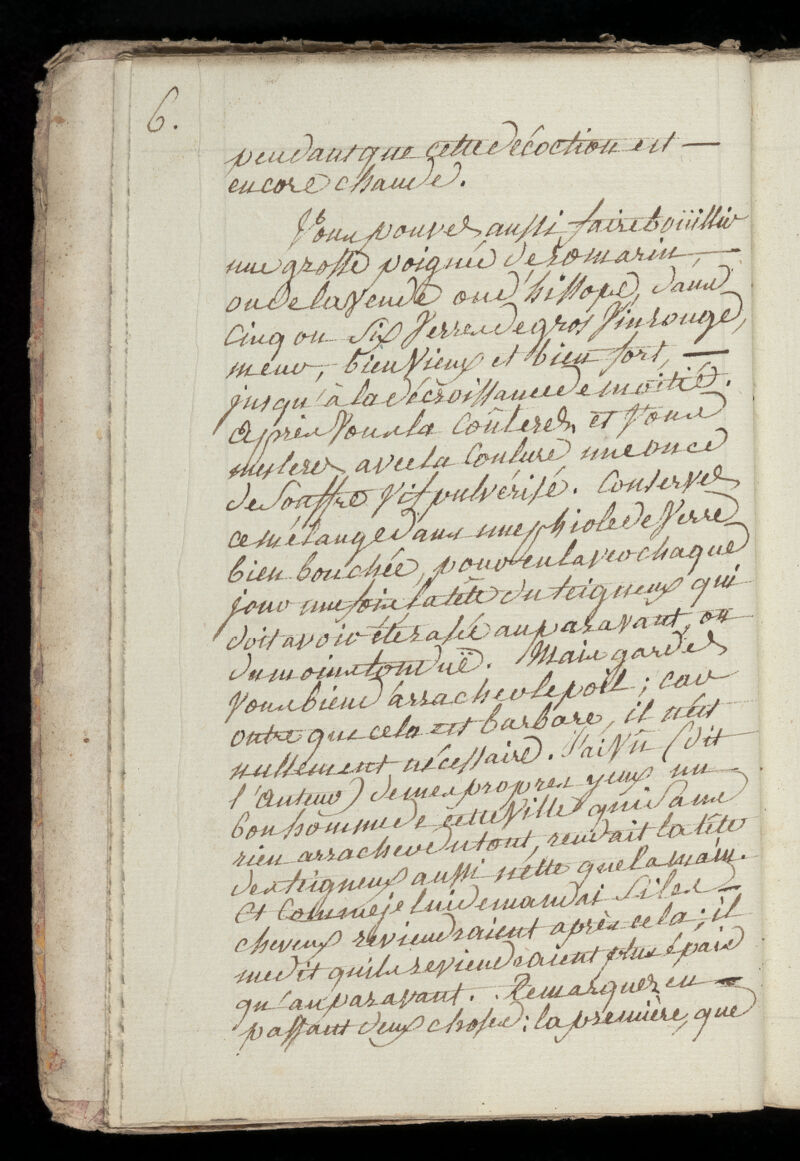 6.
pendant que cette décoction est —
encore chaude.
Vous pouvez aussi faire boüillir
une grosse poignée de romarin —
ou de lavende ou d'hissope, dans
cinq ou six verres de gros vin rouge,
meur, bien vieux et bien fort, —
jusqu'à la décroissance de moitié.
après vous la coûlerez, et vous
meslerez avec la coulure une once
de souffre vif pulvérisé. Conservez
ce mélange dans une phiole de verre
bien bouchée, pour en laver chaque
jour une fois la tête du teigneux qui
doit avoir été rasée auparavant, ou
du moins tonduë. Mais gardez
vous bien d'arracher le poil; car
outre que cela est barbare, il n'est
nullement nécessaire. J'ai vû (dit
l'auteur) de mes propres yeux un
bon homme de cette ville qui sans
rien arracher du tout, rendait la tête
des teigneux aussi nette que la main.
et comme je lui demandai si les —
cheveux reviendraient après cela; il
me dit qu'ils reviendraient plus épais
qu'auparavant. Remarquez en —
passant deux choses: la première, que